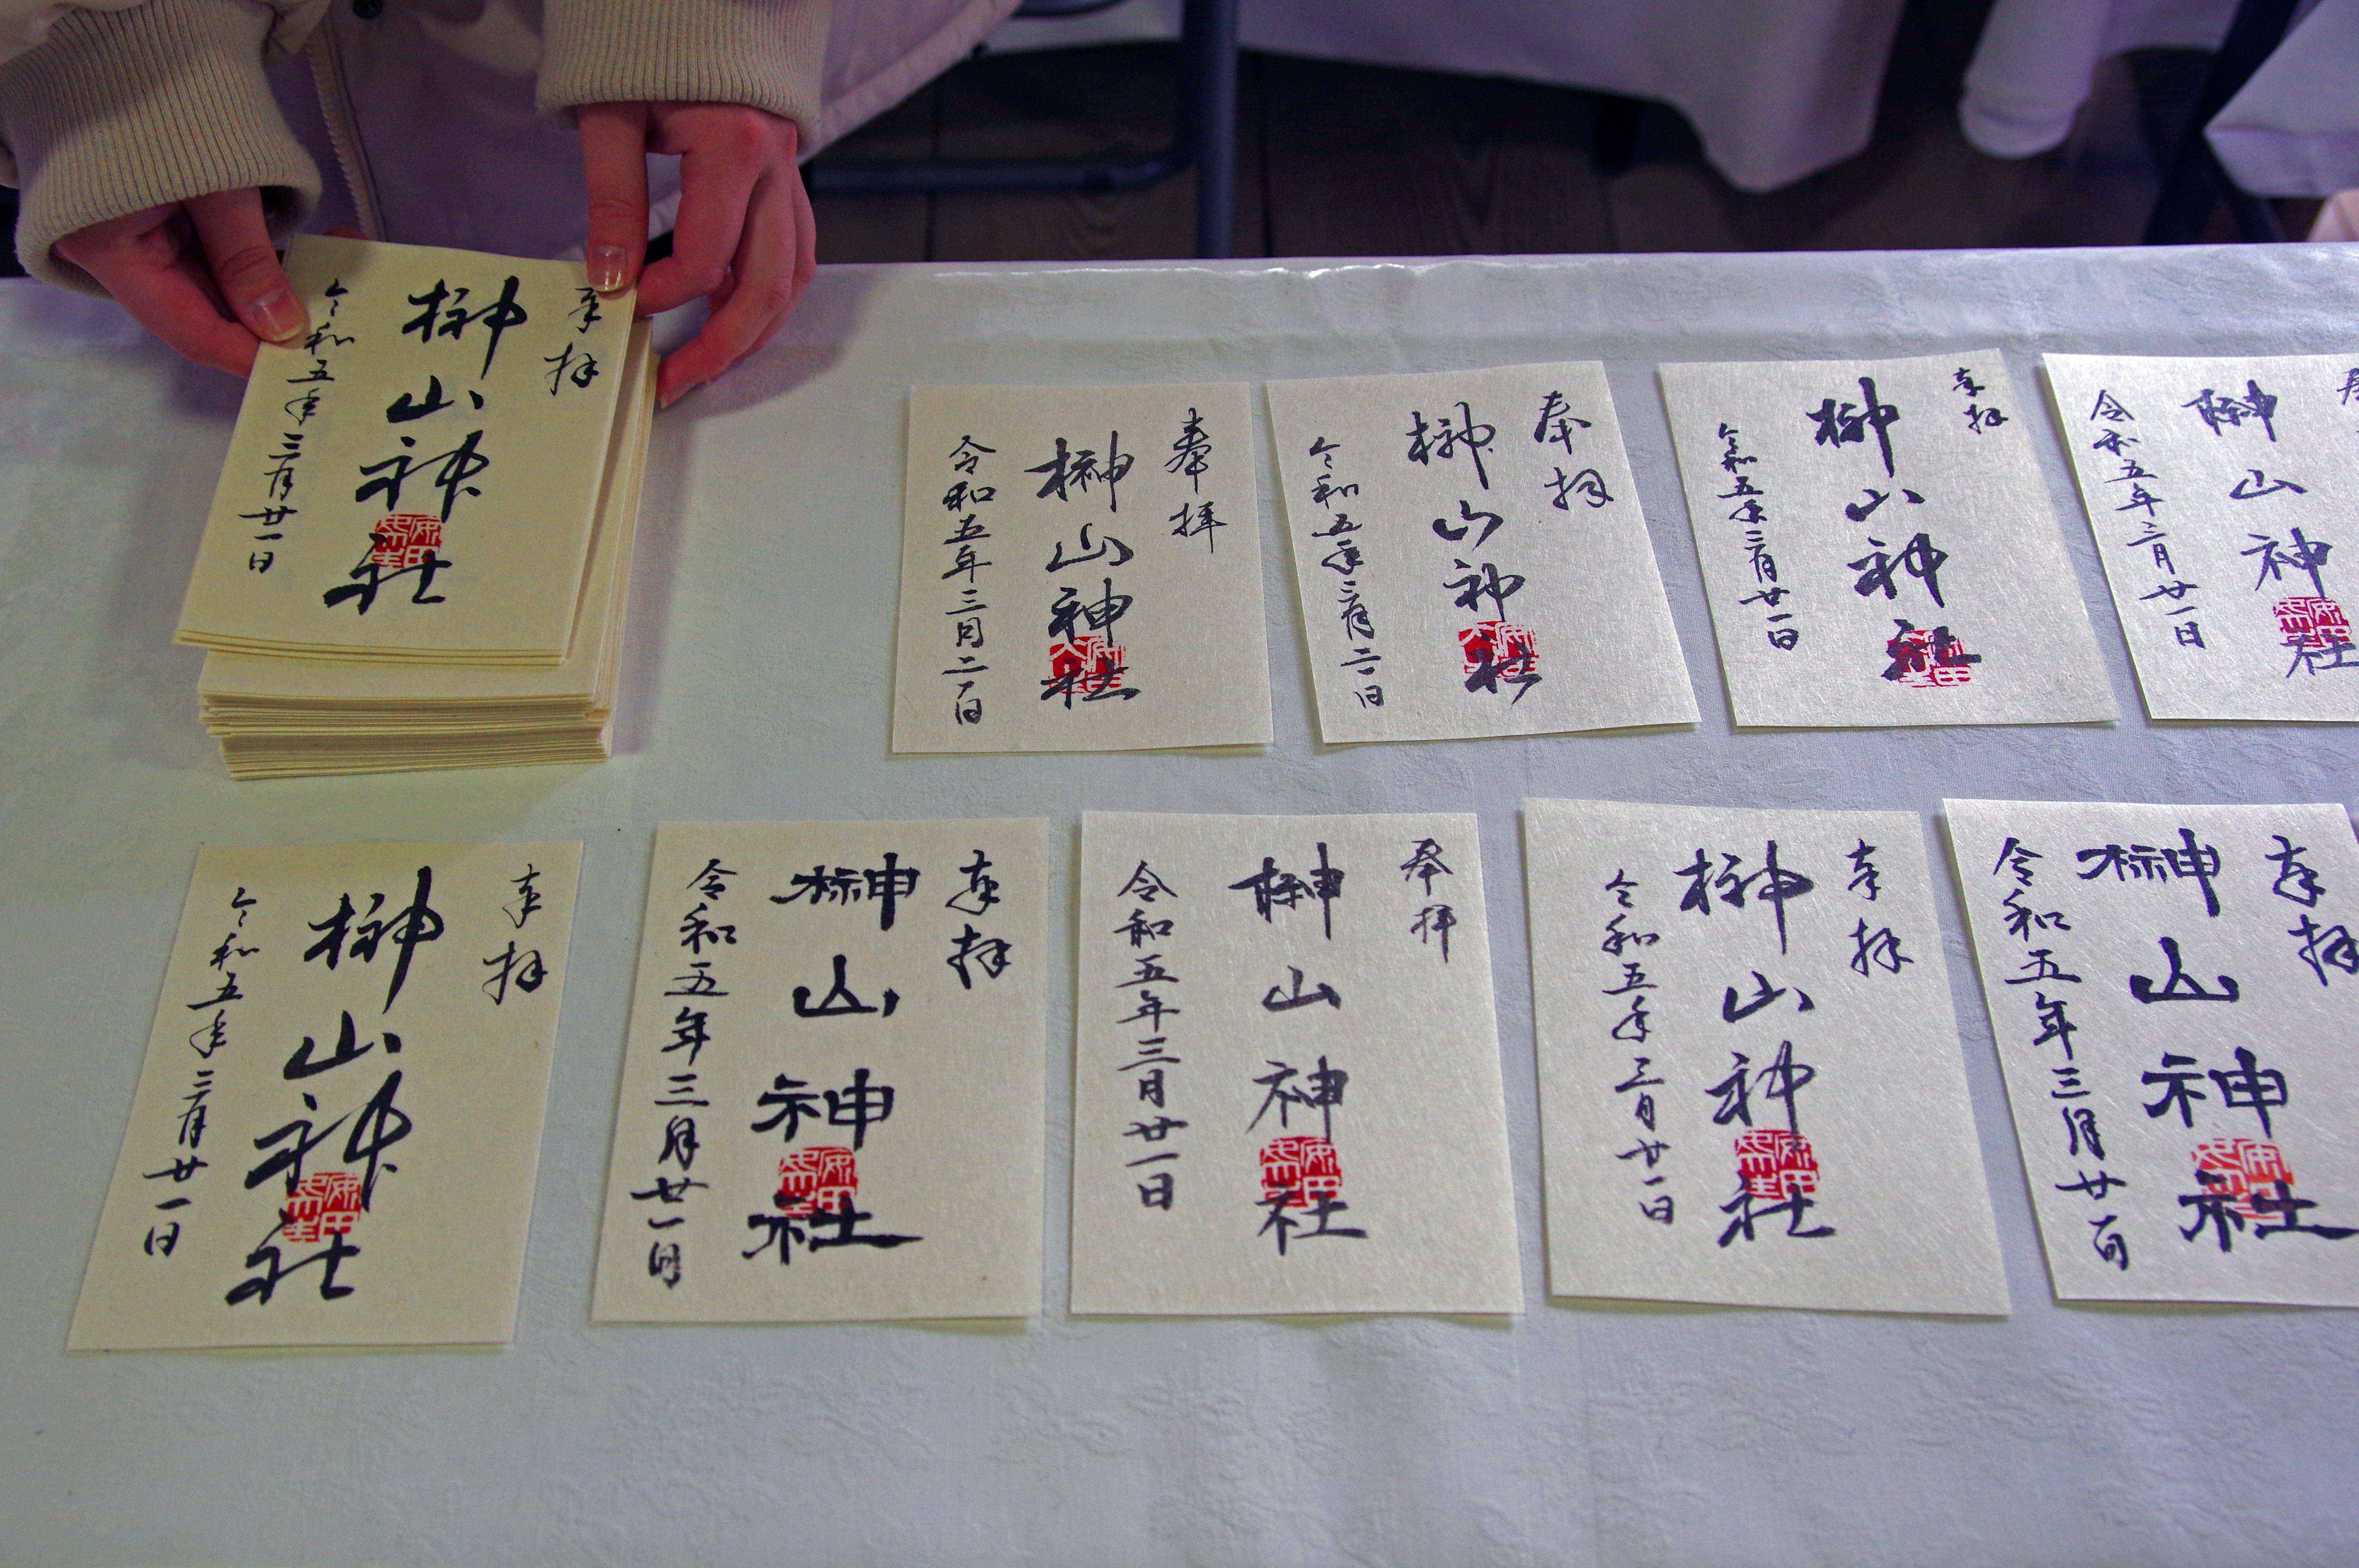 奉拝
榊山神社
令和五年三月廿一日
奉拝
榊山神社
令和五年三月二一日
奉拝
榊山神社
令和五年三月二一日
奉拝
榊山神社
令和五年三月廿一日
榊山神社
令和五年三月廿一日
奉拝
榊山神社
令和五年三月廿一日
奉拝
榊山神社
令和五年三月廿一日
奉拝
榊山神社
令和五年三月廿一日
奉拝
榊山神社
令和五年三月廿一日
奉拝
榊山神社
令和五年三月廿一日